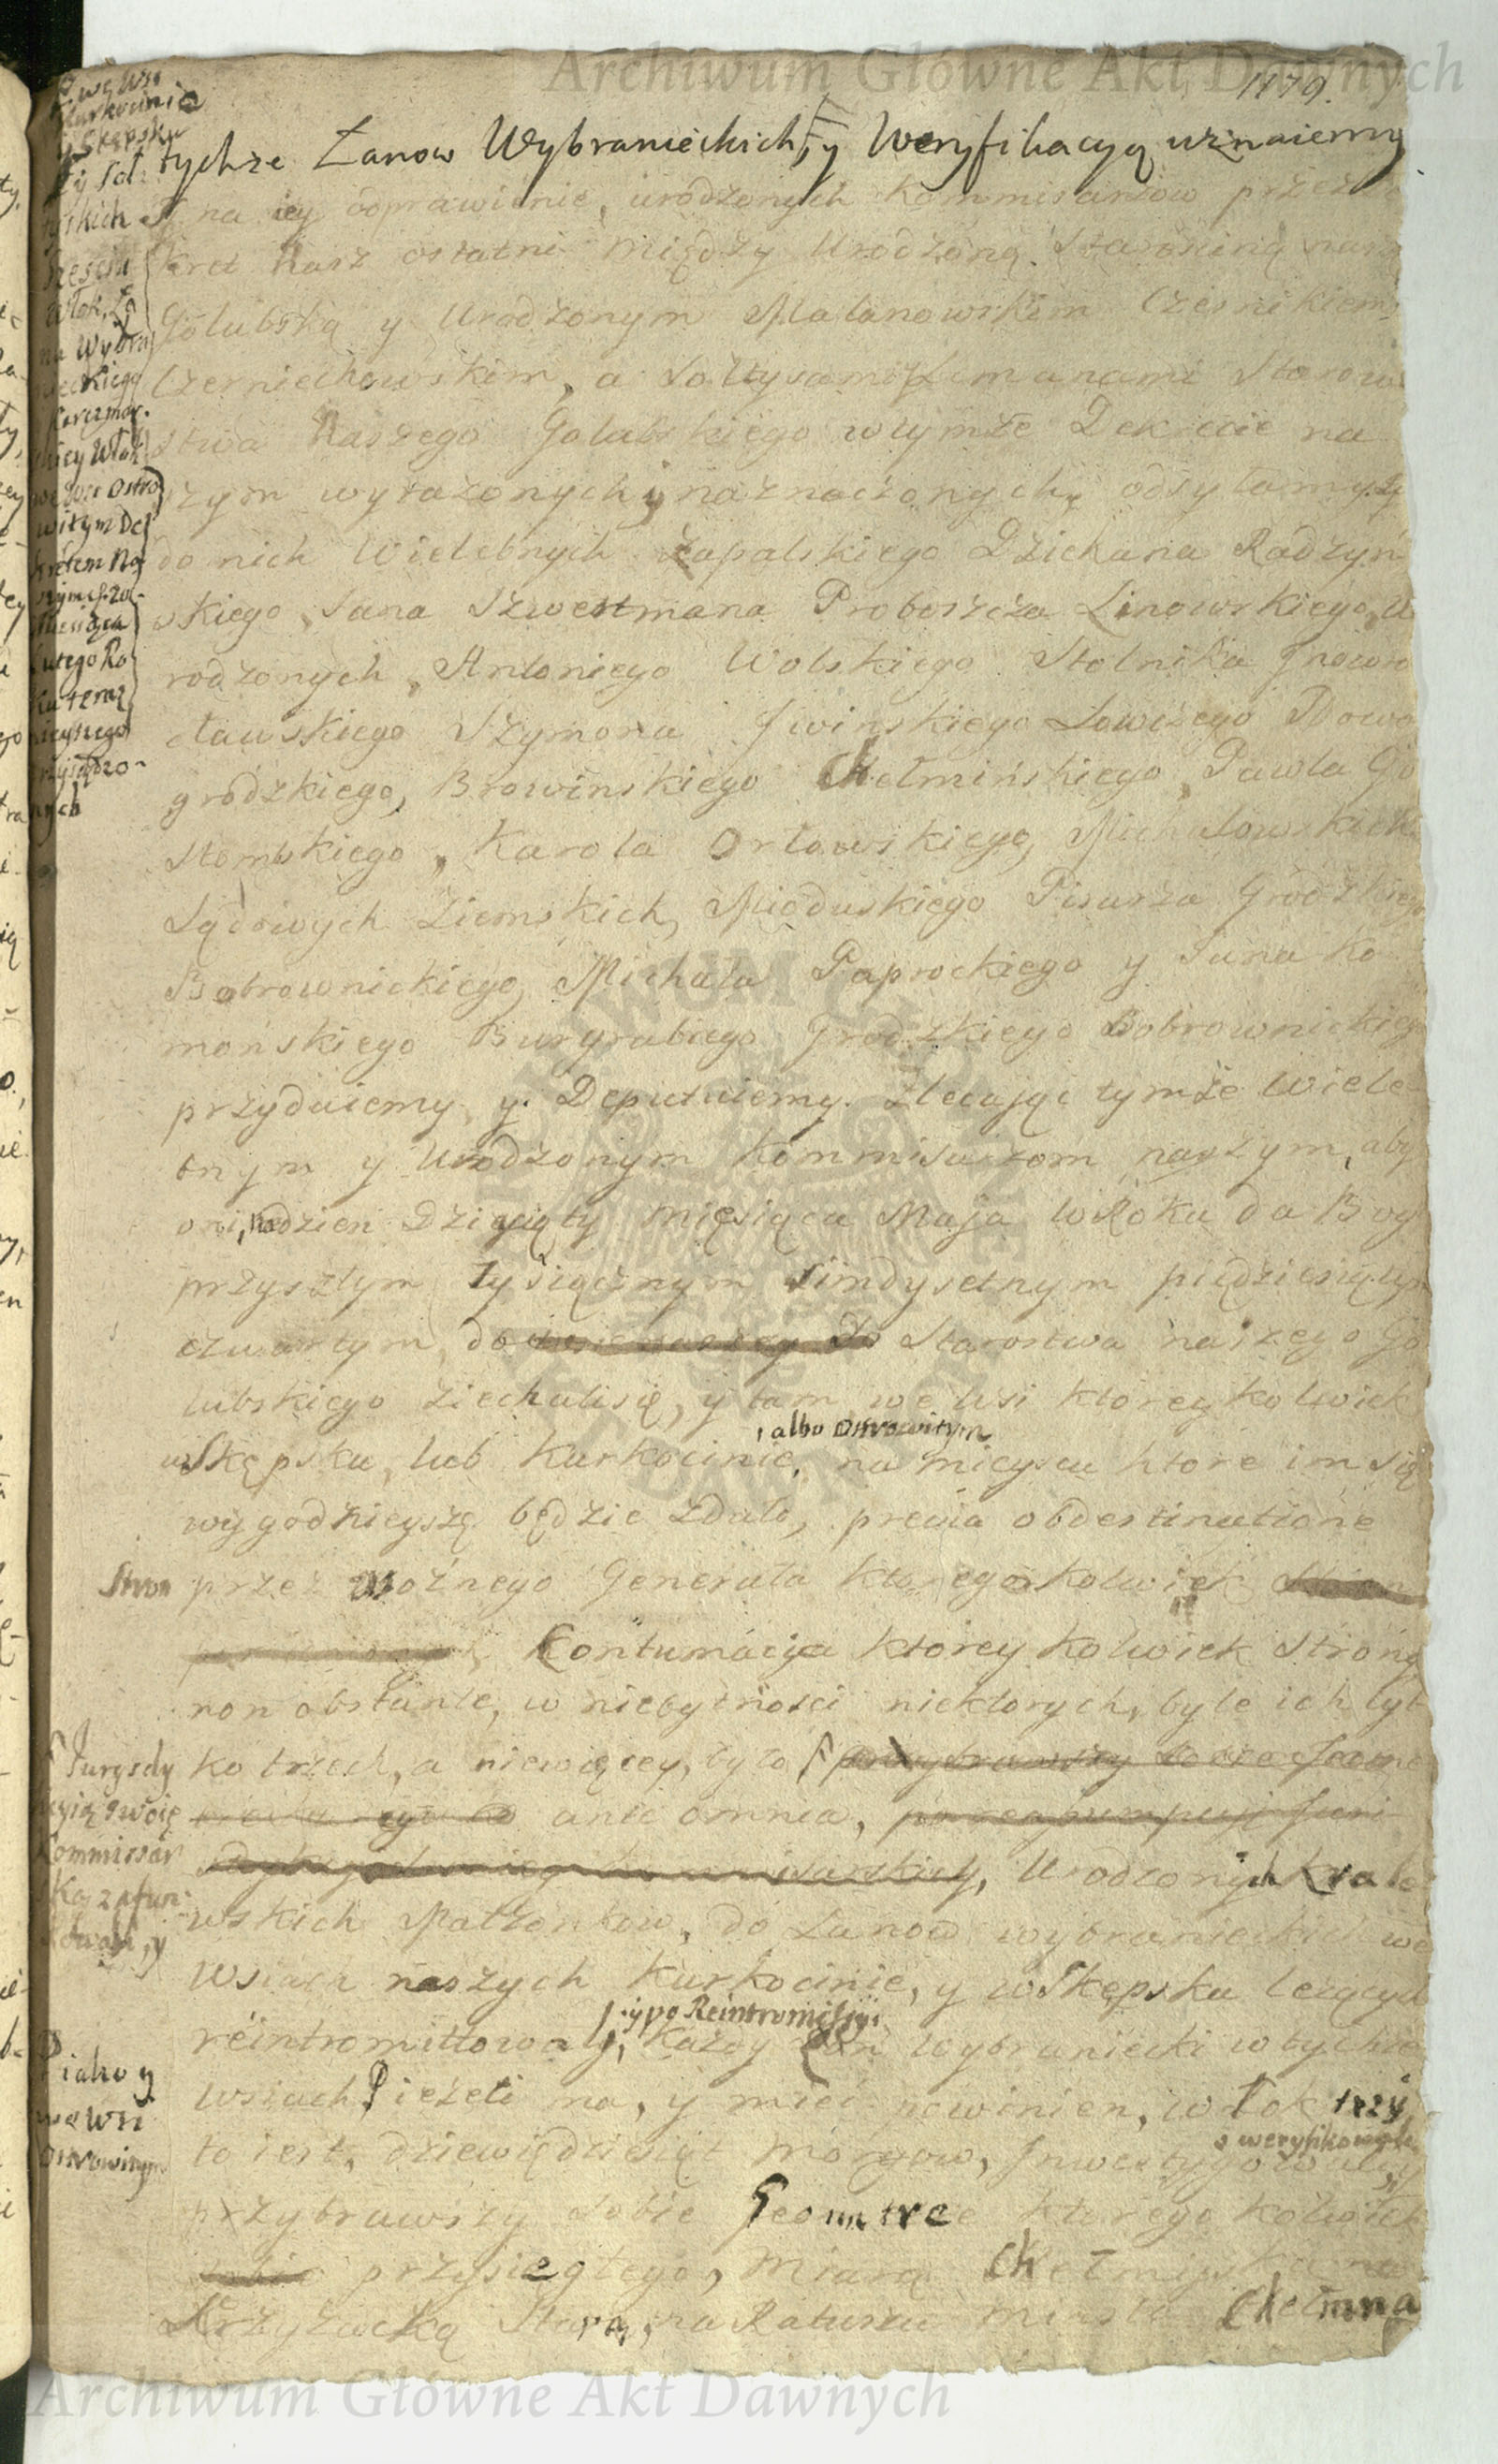 Archiwum Główne Akt Dawnych
1179.
we Wsi
Kurkocinie
y Skępsku
tychże Łanow Wybranieckich, y Weryfikacyą uznaiemy
I na iey odprawienie, urodzonych Kommisarzow przez De
kret Nasz ostatni między Urodzoną Starościną naszą
Golubską y Urodzonym Małanowskim Cześnikiem
Czerniechowskim, a Sołtysami Lemanami Starow
stwa Naszego Golubskiego w tymże Dekrecie na
szym wyrażonych y naznaczonych, odsyłamy, y
do nich Wielebnych Łapalskiego Dziekana Radzyń
skiego, Jana Szwertmana Proboszcza Linowskiego, U
rodzonych, Antoniego Wolskiego Stolnika Jnowro
cławskiego Szymona Jwinskiego Łowczego Nowo
grodzkiego, Browinskiego Chełmińskiego, Pawła Go
stomskiego, Karola Orłowskiego, Michałowskich
Sądowych Ziemskich, Mioduskiego Pisarza Grodzkiego
Bobrownickiego, Michała Paprockiego y Jana Ko
mońskiego Burgrabiego Grodzkiego Bobrownickiego
przydaiemy y Deputuiemy. Zlecaiąc tymże Wiele
bnym y Urodzonym Kommisarzom naszym, aby
oni, na dzien Dziesiąty Miesiąca Maja w Roku da Bog
przyszłym tysiącznym siedmsetnym pięćdziesiątym
czwartym, do Starostwa naszego Go
lubskiego ziechali się, y tam we wsi ktoreykolwiek
, albo Ostrowitym
w Skępsku, lub Kurkocinie, na mieyscu ktore im się
wygodnieysze będzie zdało, prævia obdestinatione
Stron przez Woźnego Generała ktoregokolwiek
Kontumacya ktoreykolwiek Strony
non obstante, w niebytności niektorych, byle ich tyl
ko trzech, a niewięcey, było
ante omnia,
Urodzonych Krale
wskich Małżonkow, do Łanow wybranieckich we
Wsiach naszych Kurkocinie, y w Skępsku leżących
y po Reintromissyi
reintromittowali, Każdy Łan Wybraniecki w tychże
Wsiach ieżeli ma, y mieć powinien, włok trzy
to iest, dziewięćdziesiąt Morgow,
przybrawszy sobie Geometrę ktoregokolwiek
przysięgłego, Miarą
Krzyżacką Starą, na Ratuszu Miasta Chełmna
y Soł
tyskich
Sześciu
Włok, Ła
na Wybra
nieckiego
Karczmar-
skiey Włok
we Wsi Ostro
witym De
kretem Na
szym
Miesiąca
Lutego Ro
ku teraz
nieyszego
przysądzo-
nych
Jurysdy
kcyią swoię
Kommissar
ską zafun
dowali, y
iako y
we Wsi
Ostrowitym
Archiwum Główne Akt Dawnych